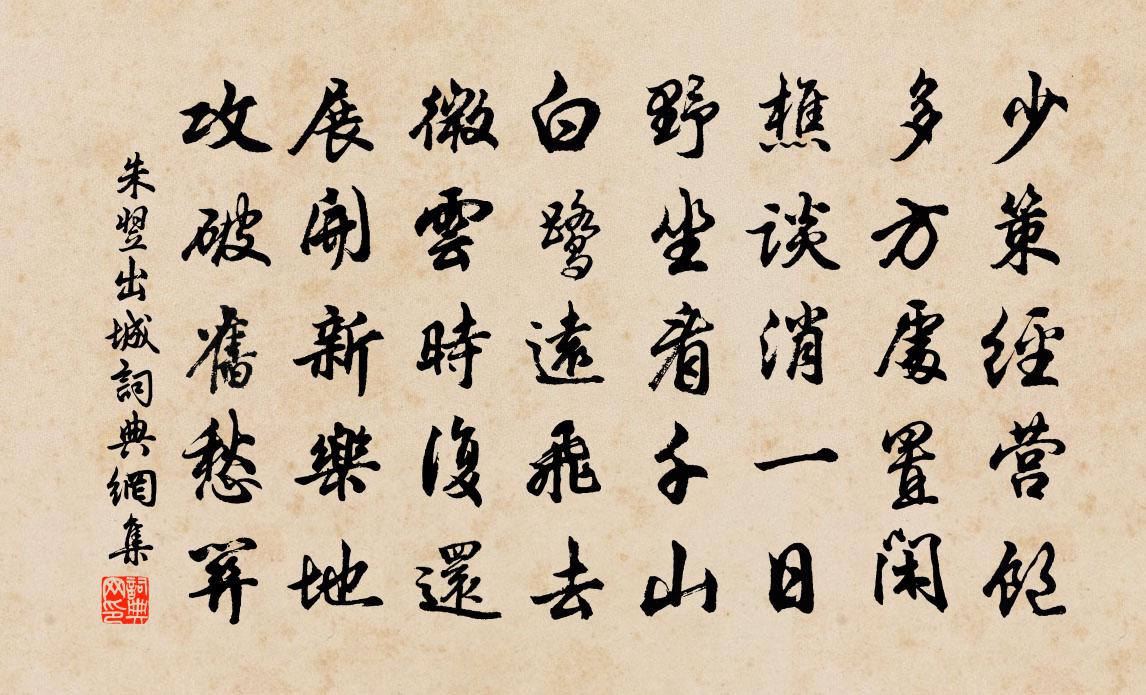 少策經營飽
多方處置閑
樵談消一日
野坐看千山
白鷺遠飛去
微雲時復還
展開新樂地
攻破舊愁關
朱翌出城詞典網集
詞典网印